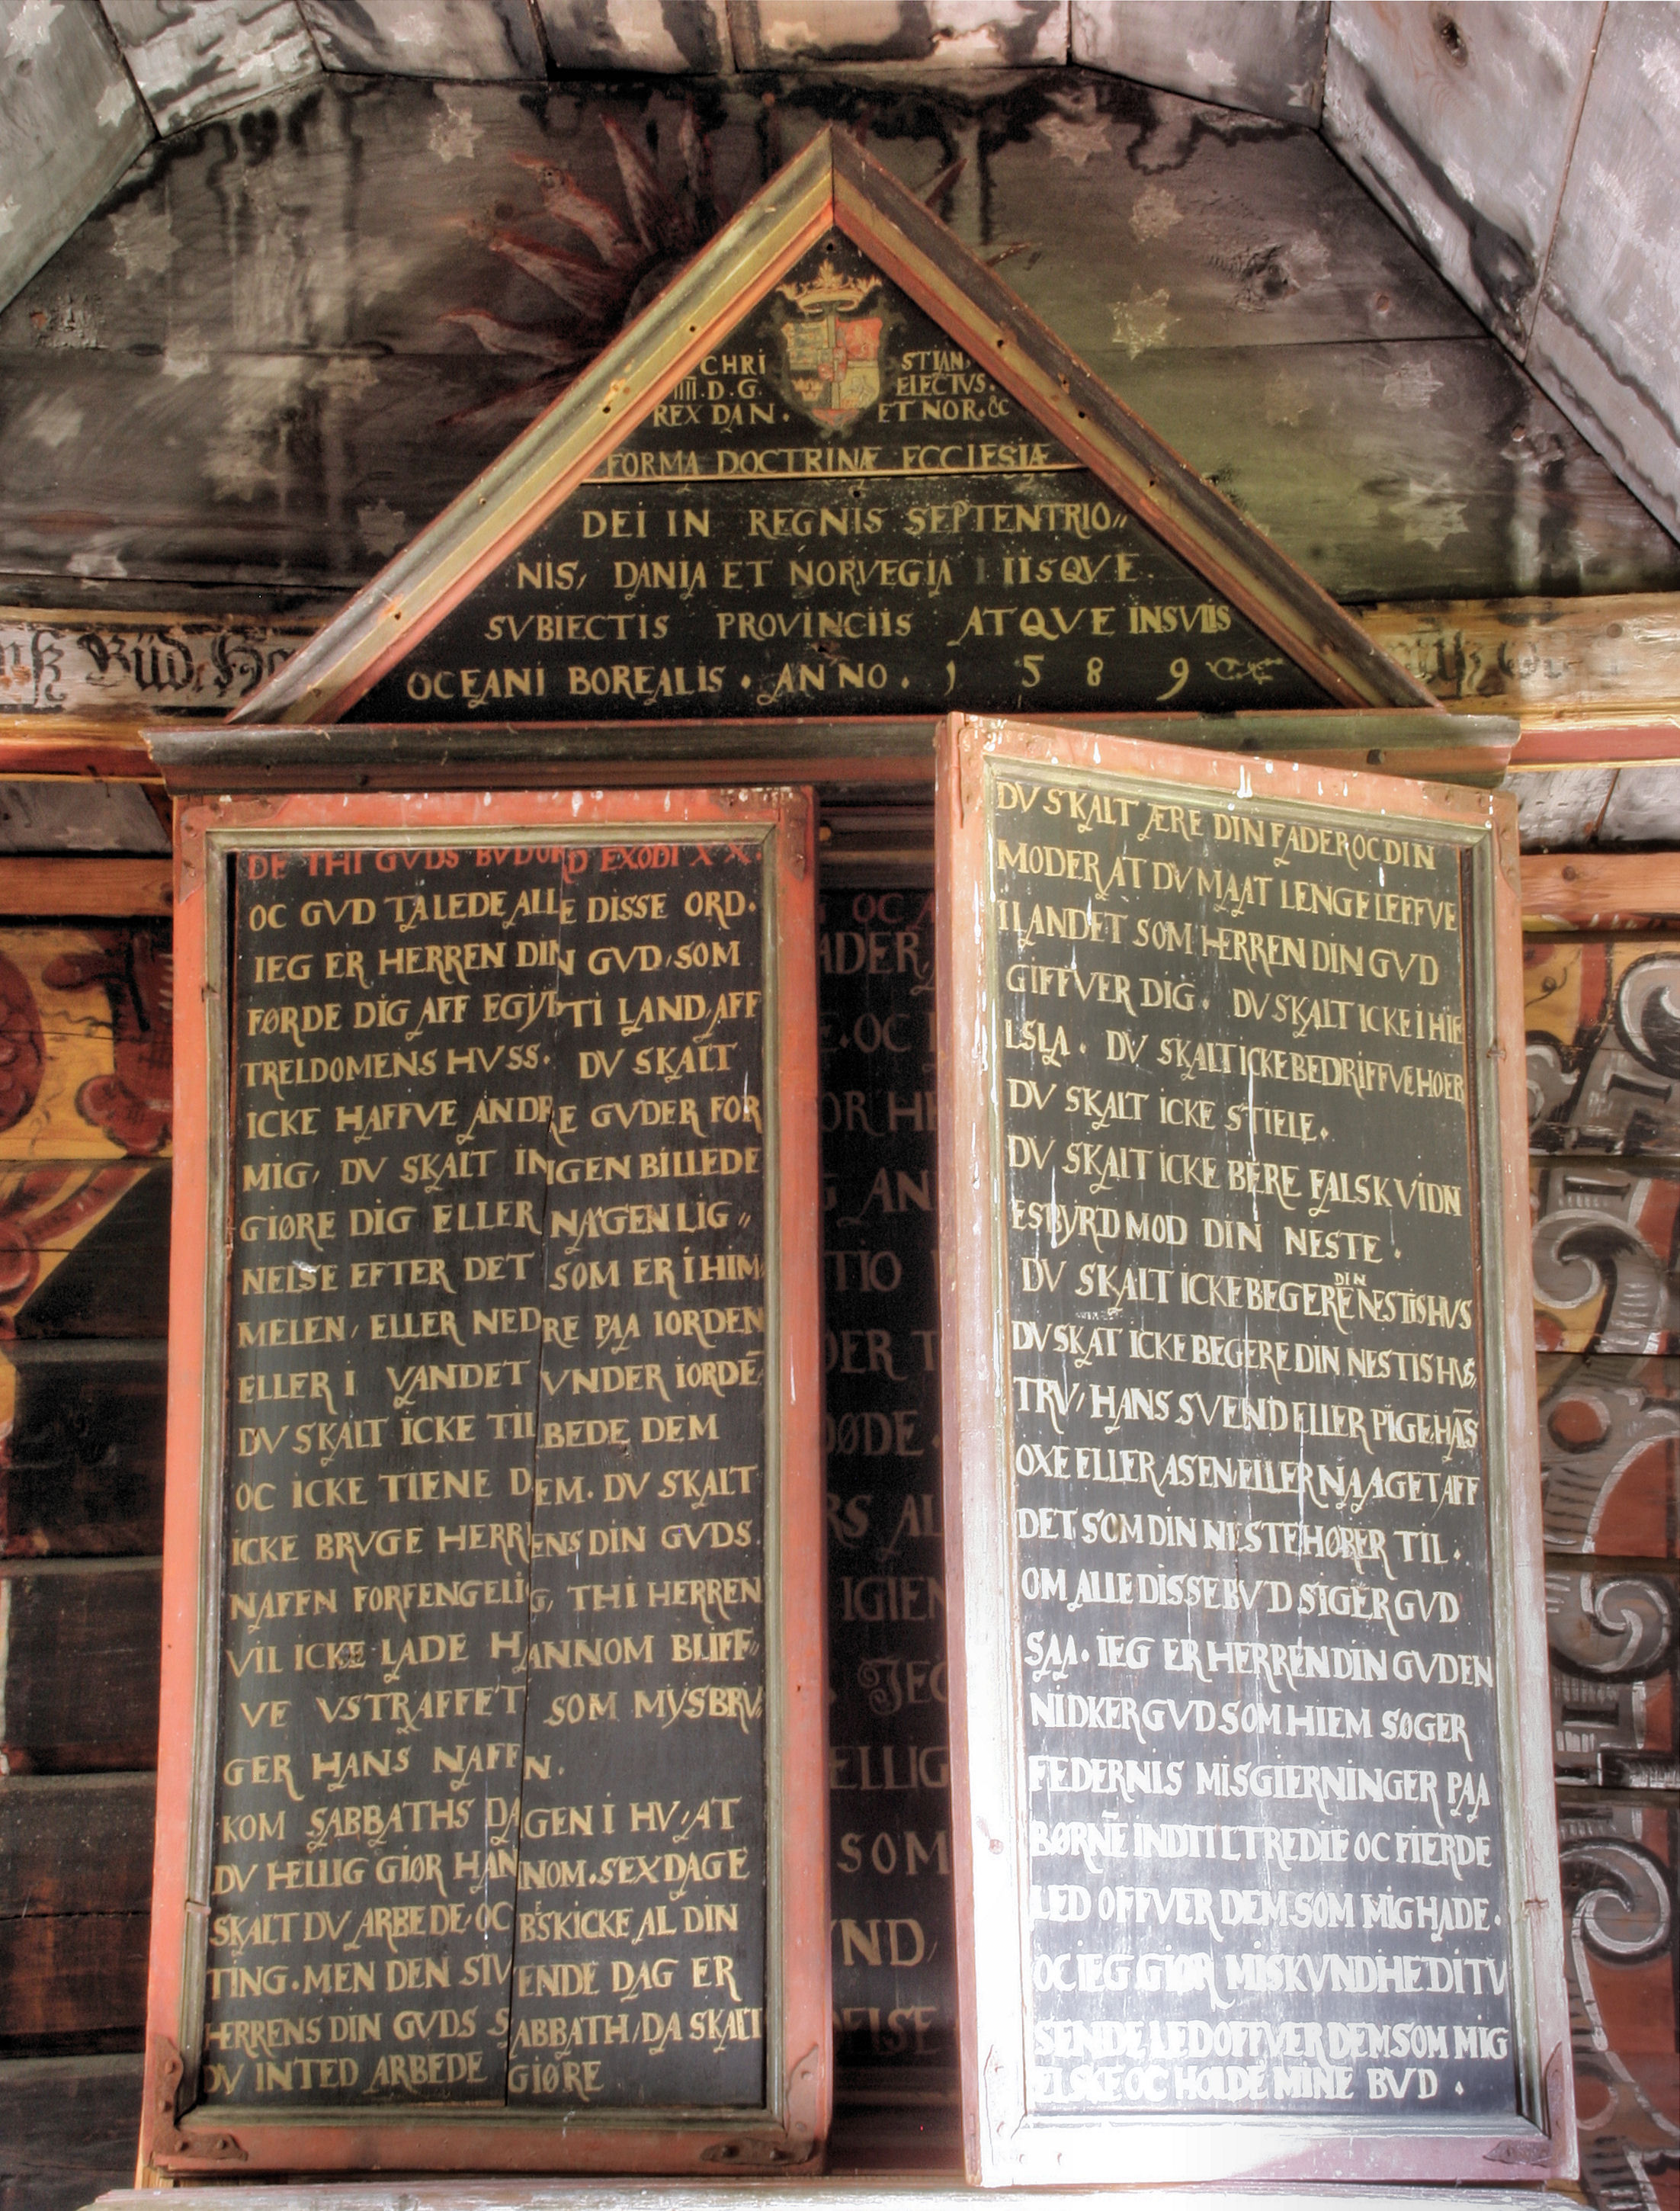 CHRI STIAN,
IIII. D. G. ELECTVS.
REX DAN. ET NOR. &C
FORMA DOCTRINÆ ECCLESIÆ
DEI IN REGNIS SEPTENTRIO〃
NIS, DANIA ET NORVEGIA IIISQVE
SVBIECTIS PROVINCIIS ATQVE INSVLIS
OCEANI BOREALIS. ANNO. 1589
DE THI GVDS BVDORD EXODI XX.
OC GVD TALEDE ALLE DISSE ORD.
IEG ER HERREN DIN GVD, SOM
FØRDE DIG AFF EGIPTI LAND, AFF
TRELDOMENS HVSS. DV SKALT
ICKE HAFFVE ANDRE GVDER FOR
MIG, DV SKALT INGEN BILLEDE
GIØRE DIG ELLER NAGEN LIG〃
NELSE EFTER DET SOM ER I HIM
MELEN, ELLER NEDRE PAA IORDEN
ELLER I VANDET VNDER IORDĒ
DV SKALT ICKE TILBEDE DEM
OC ICKE TIENE DEM. DV SKALT
ICKE BRVGE HERRENS DIN GVDS
NAFFN FORFENGELIG, THI HERREN
VIL ICKE LADE HANNOM BLIFF〃
VE VSTRAFFET SOM MYSBRV〃
GER HANS NAFFN.
KOM SABBATHS DAGEN I HV, AT
DV HELLIG GIØR HANNOM. SEX DAGE
SKALT DV ARBEDE, OC BESKICKE AL DIN
TING. MEN DEN SIVENDE DAG ER
HERRENS DIN GVDS SABBATH, DA SKALT
DV INTED ARBEDE GIØRE
DV SKALT ÆRE DIN FADER OC DIN
MODER AT DV MAAT LENGE LEFFVE
I LANDET SOM HERREN DIN GVD
GIFFVER DIG. DV SKALT ICKE I HIE
LSLA. DV SKALT ICKE BEDRIFFVE HOER
DV SKALT ICKE STIELE.
DV SKALT ICKE BERE FALSK VIDN
ESBYRD MOD DIN NESTE.
DV SKALT ICKE BEGERE DIN NESTIS HVS
DV SKAT ICKE BEGERE DIN NESTIS HVS,
TRV, HANS SVEND ELLER PIGE, HĀS
OXE ELLER ASEN, ELLER NAAGET AFF
DET SOM DIN NESTE HØRER TIL.
OM ALLE DISSE BVD SIGER GVD
SAA. IEG ER HERREN DIN GVD EN
NIDKER GVD SOM HIEM SØGER
FEDERNIS MISGIERNINGER PAA
BØRNĒ INDTIL TREDIE OC FIERDE
LED OFFVER DEM SOM MIG HADE.
OC IEG GIØR MISKVNDHED I TV
SENDE LED OFFVER DEM SOM MIG
ELSKE OC HOLDE MINE BVD.